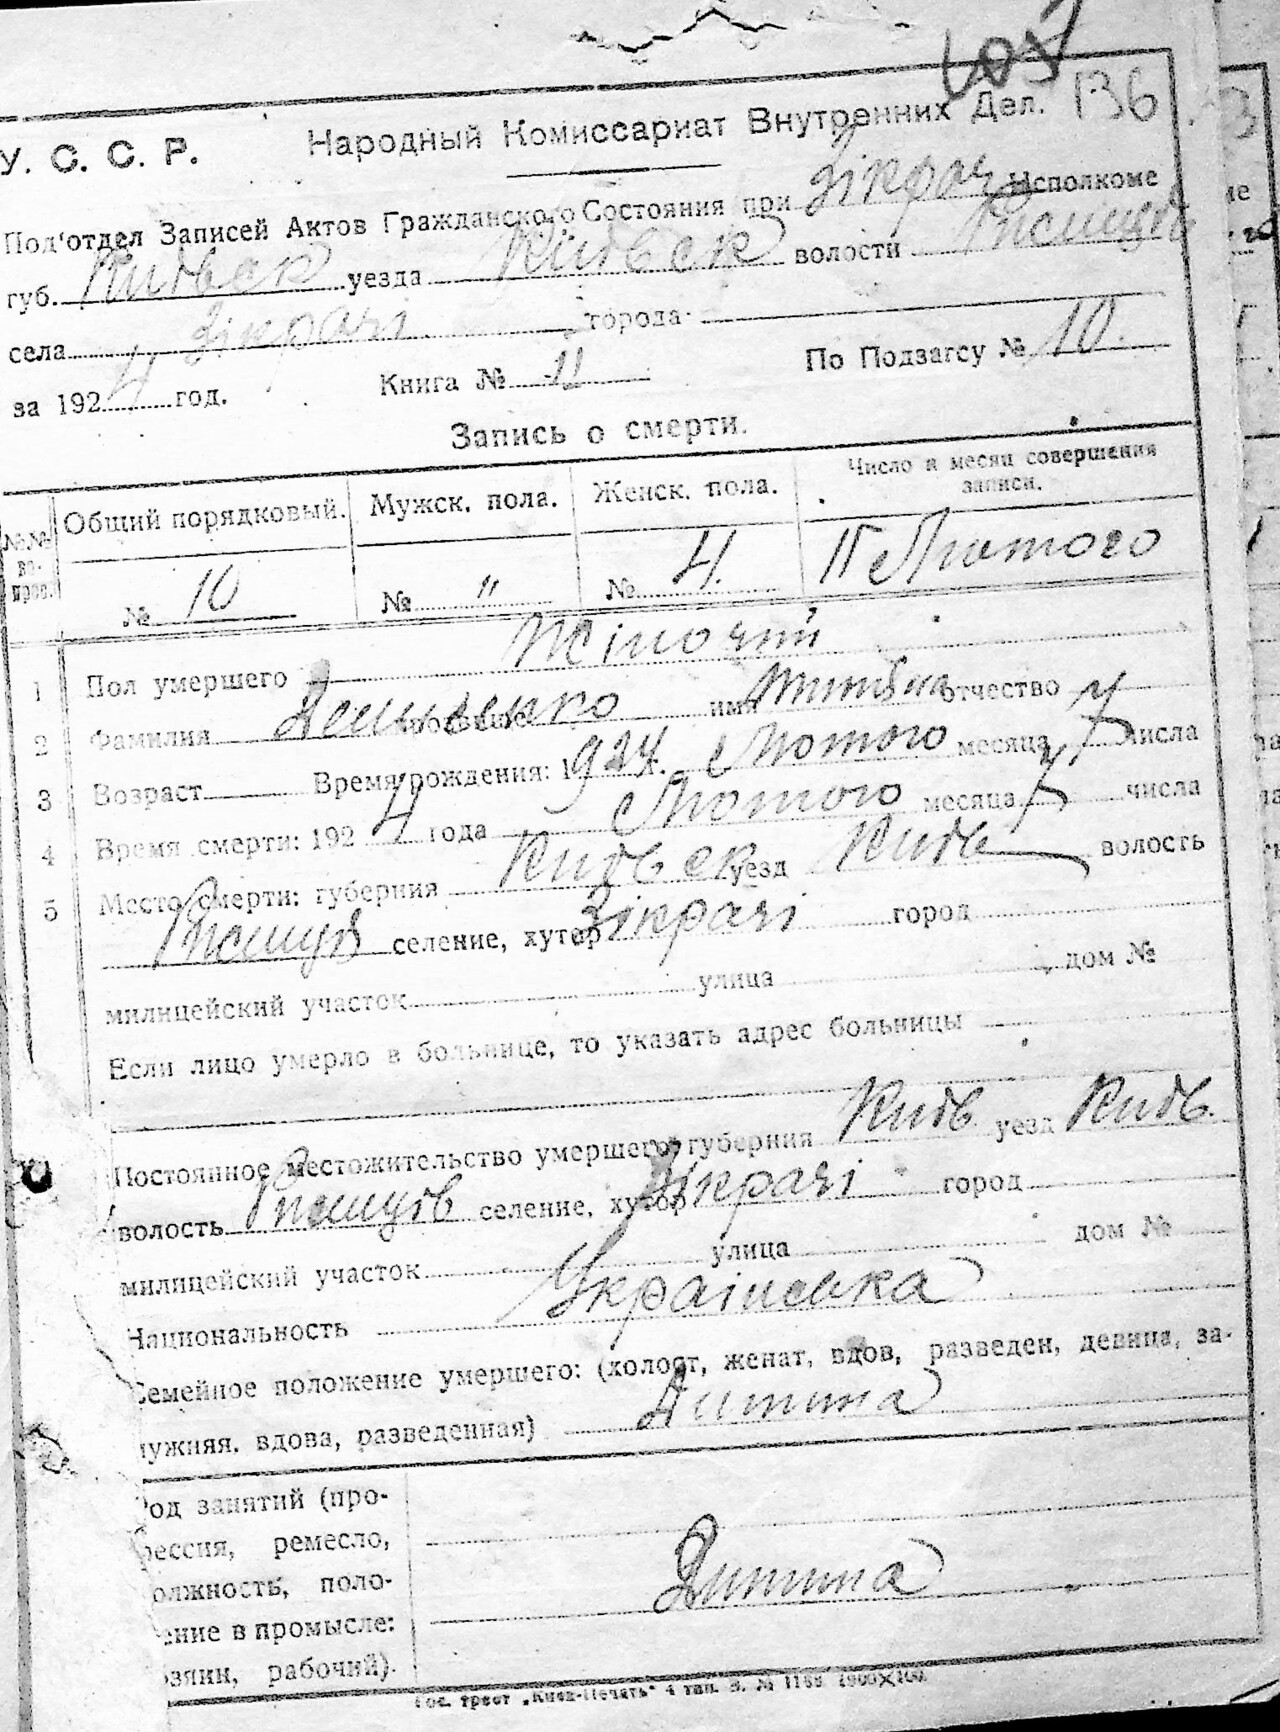 136
У. С. С. Р. Народный Комиссариат Внутренних Дел.
Под'отдел Записей Актов Гражданского Состояния при Зікрач Исполкоме
губ. Київськ уезда Київськ волости Ржищів
села Зікрачі города
за 1924 год. Книга № 11 По Подзагсу № 10.
Запись о смерти.
№№ во-прос. Общий порядковый. Мужск. пола. Женск. пола. Число и месяц совершения записи.
№ 10 № " № 4. 11 Лютого
1 Пол умершего Жіночий
2 Фамилия Денисенко прозвище имя отчество
3 Возраст Время рождения: 1924 г. Лютого месяца 7 числа
4 Время смерти: 1924 года Лютого месяца 7 числа
5 Место смерти: губерния Київськ уезд Київ волость
Ржищів селение, хутор Зікрачі город
милицейский участок улица дом №
Если лицо умерло в больнице, то указать адрес больницы
Постоянное местожительство умершего: губерния Київ уезд Київ.
волость Ржищів селение, хутор Зікрачі город
милицейский участок улица дом №
Национальность Українська
Семейное положение умершего: (холост, женат, вдов, разведен, девица, за-
мужняя, вдова, разведенная) Дитина
Род занятий (про-
фессия, ремесло,
должность, поло-
жение в промысле: Дитина
хозяин, рабочий).
Гос. трест „Киев-Печать" 4 тип. З. № 1168